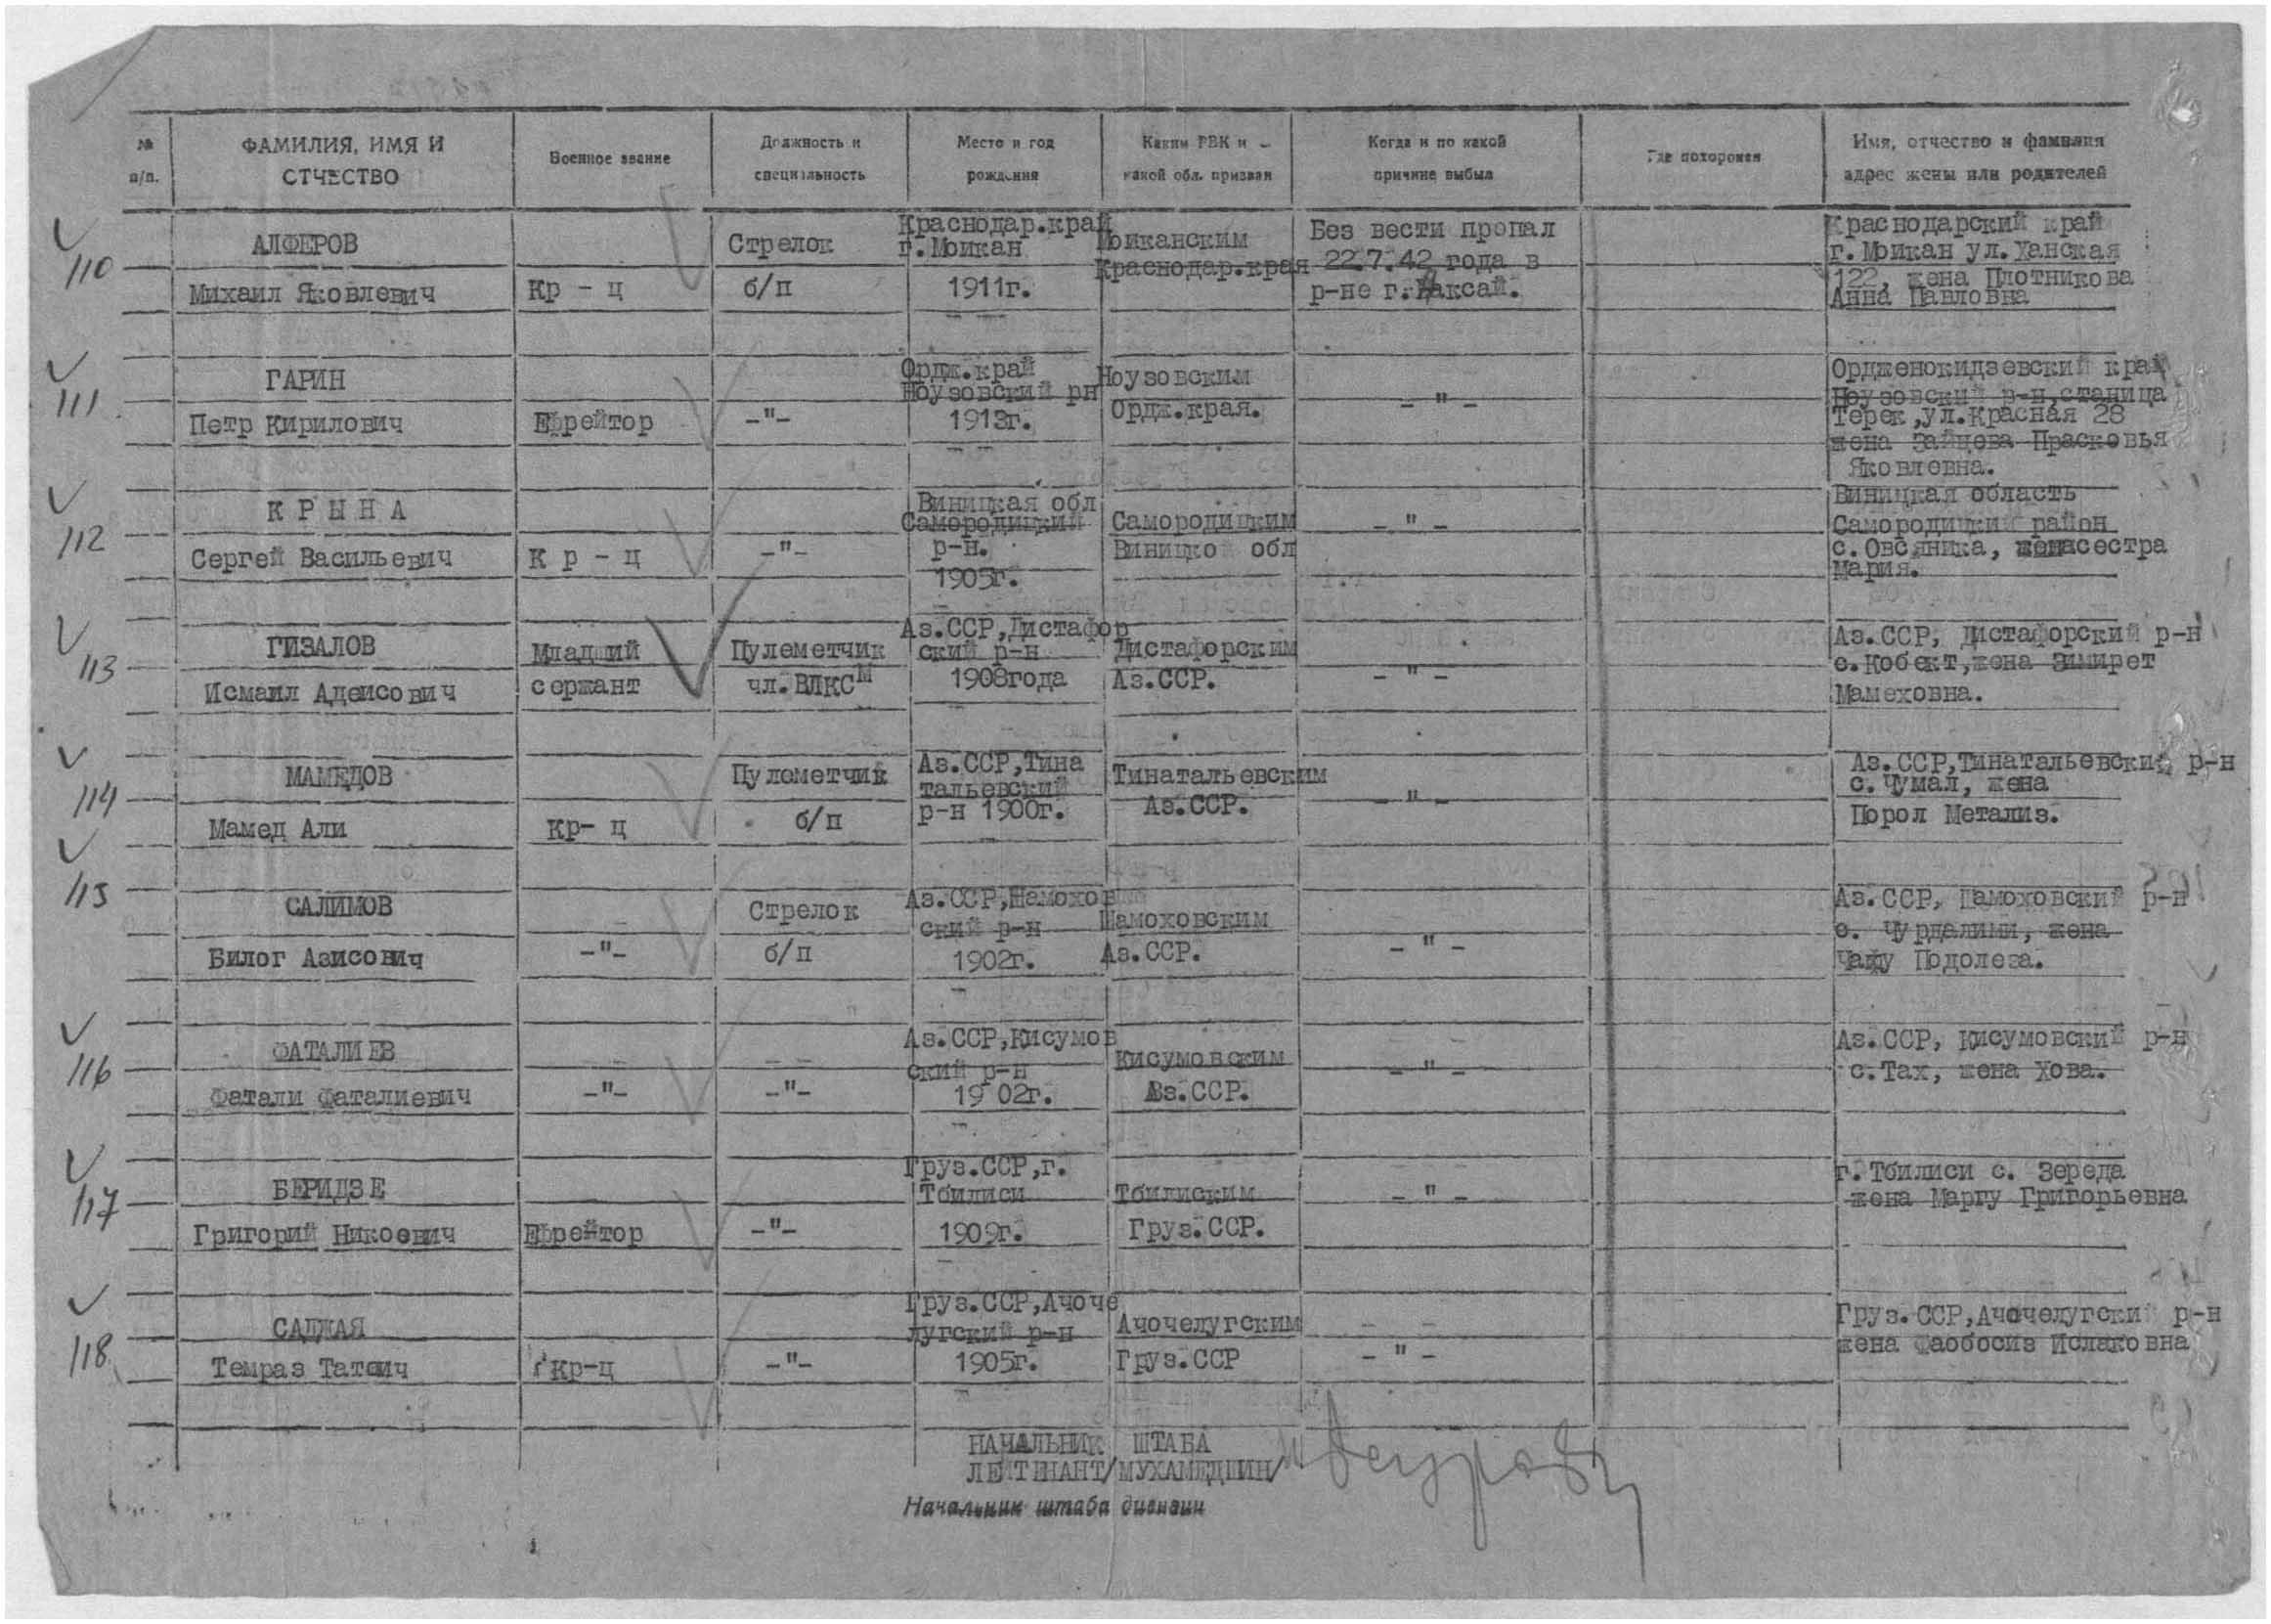 № п/п.
ФАМИЛИЯ, ИМЯ И ОТЧЕСТВО
Военное звание
Должность и специальность
Место и год рождения
Каким РВК и какой обл. призван
Когда и по какой причине выбыл
Где похоронен
Имя, отчество и фамилия адрес жены или родителей
110
АЛФЕРОВ
Михаил Яковлевич
Кр - ц
Стрелок
б/п
Краснодар.край
г.Моикан
1911г.
Моиканским
Краснодар.края
Без вести пропал
22.7.42 года в
р-не г.Аксай.
Краснодарский край
г.Моикан ул.Ханская
122, жена Плотникова
Анна Павловна
111
ГАРИН
Петр Кирилович
Ефрейтор
-"-
Ордж.край
Ноузовский рн
1913г.
Ноузовским
Ордж.края.
- " -
Ордженокидзевский край
Ноузовский р-н,станица
Терек,ул.Красная 28
жена Зайцева Прасковья
Яковлевна.
112
К Р Ы Н А
Сергей Васильевич
К р - ц
-"-
Виницкая обл
Самородицкий
р-н.
1905г.
Самородицким
Виницко обл
- " -
Виницкая область
Самородицкий район
с.Овсяника, сестра
Мария.
113
ГИЗАЛОВ
Исмаил Адеисович
Младший
сержант
Пулеметчик
чл.ВЛКСМ
Аз.ССР,Дистафор
ский р-н
1908года
Дистафорским
Аз.ССР.
- " -
Аз.ССР, Дистафорский р-н
с.Кобект,жена Зимирет
Мамеховна.
114
МАМЕДОВ
Мамед Али
Кр- ц
Пулеметчик
б/п
Аз.ССР,Тина
тальевский
р-н 1900г.
Тинатальевским
Аз.ССР.
- " -
Аз.ССР,Тинатальевский р-н
с.Чумал, жена
Порол Метализ.
115
САЛИМОВ
Билог Азисович
-"-
Стрелок
б/п
Аз.ССР,Шамохов
ский р-н
1902г.
Шамоховским
Аз.ССР.
- " -
Аз.ССР, Шамоховский р-н
с. Чурдалими, жена
Подолеза.
116
ФАТАЛИЕВ
Фатали Фаталиевич
-"-
-"-
Аз.ССР,Кисумов
ский р-н
19 02г.
Кисумовским
Аз.ССР.
- " -
Аз.ССР, Кисумовский р-н
с.Тах, жена Хова.
117
БЕРИДЗЕ
Григорий Никоевич
Ефрейтор
-"-
Груз.ССР,г.
Тбилиси
1909г.
Тбилиским
Груз.ССР.
- " -
г.Тбилиси с. Зереда
жена Маргу Григорьевна
118
САДЖАЯ
Темраз Татоич
Кр-ц
-"-
Груз.ССР,Ачоче
лугский р-н
1905г.
Ачочелугским
Груз.ССР
- " -
Груз.ССР,Ачочелугский р-н
жена Фаобосиз Ислаковна
НАЧАЛЬНИК ШТАБА
ЛЕЙТЕНАНТ/МУХАМЕДШИН/
Начальник штаба дивизии